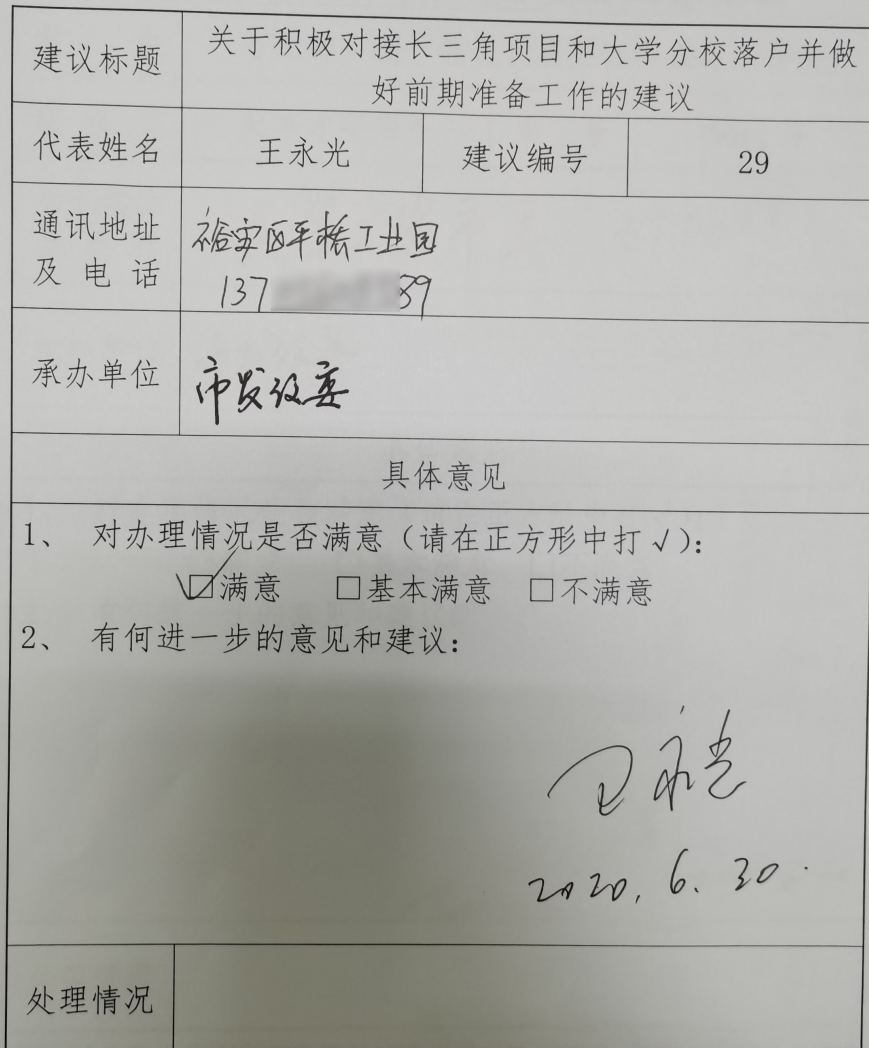 建议标题
关于积极对接长三角项目和大学分校落户并做
好前期准备工作的建议
代表姓名
王永光
建议编号
29
通讯地址
及电话
裕安区平桥工业园
137 59
承办单位
市发改委
具体意见
1、 对办理情况是否满意（请在正方形中打√）：
☑满意 □基本满意 □不满意
2、 有何进一步的意见和建议：
王永光
2020.6.30.
处理情况